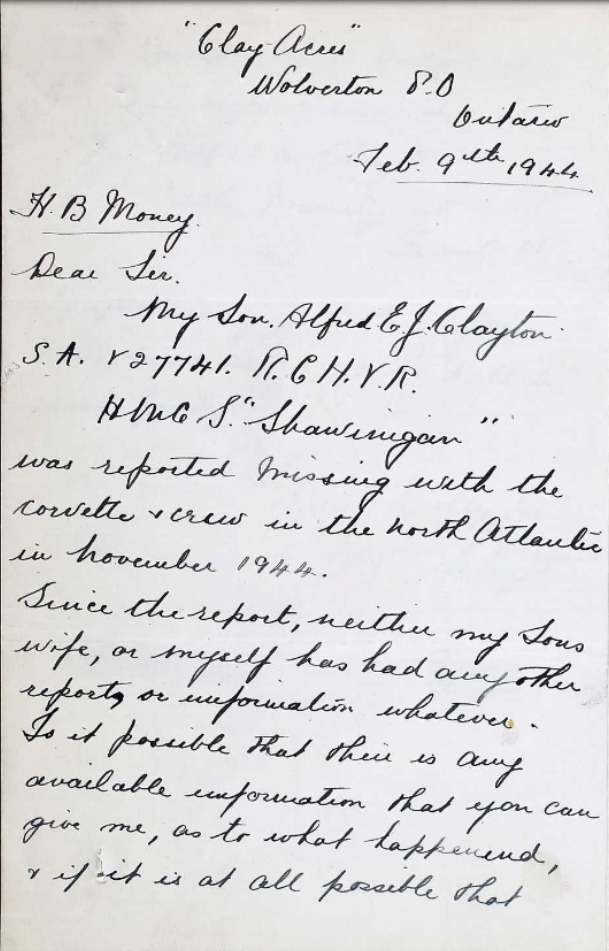 "Clay Acres"
Wolverton P.O
Ontario
Feb. 9th 1944
H. B Money.
Dear Sir.
My Son. Alfred E. J. Clayton
S. A. V 27741. R. C N. V. R.
H M C S. "Shawinigan"
was reported missing with the
corvette & crew in the North Atlantic
in November 1944.
Since the report, neither my Sons
wife, or myself has had any other
report, or information whatever.
Is it possible that their is any
available information that you can
give me, as to what happenend,
& if it is at all possible that